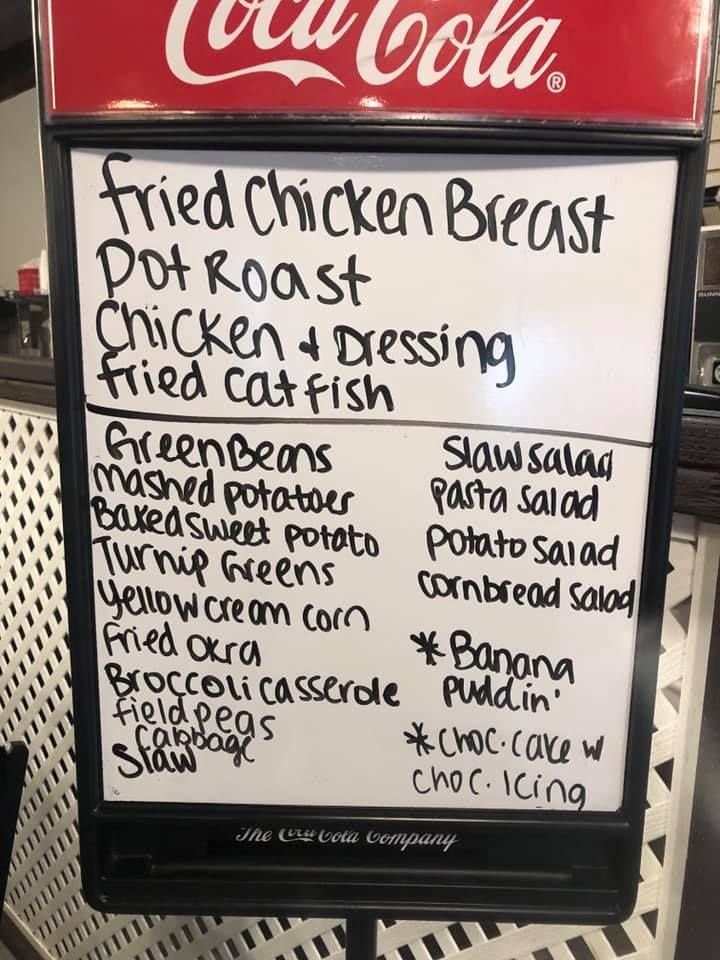 Coca-Cola®
Fried Chicken Breast
Pot Roast
Chicken & Dressing
Fried Catfish
Green Beans
Mashed potatoes
Baked Sweet potato
Turnip Greens
Yellow cream corn
Fried okra
Broccoli casserole
field peas
Cabbage
Slaw
Slaw salad
Pasta Salad
Potato Salad
Cornbread Salad
* Banana
Puddin'
* Choc. Cake w/
Choc. Icing
The Coca-Cola Company
BUNN